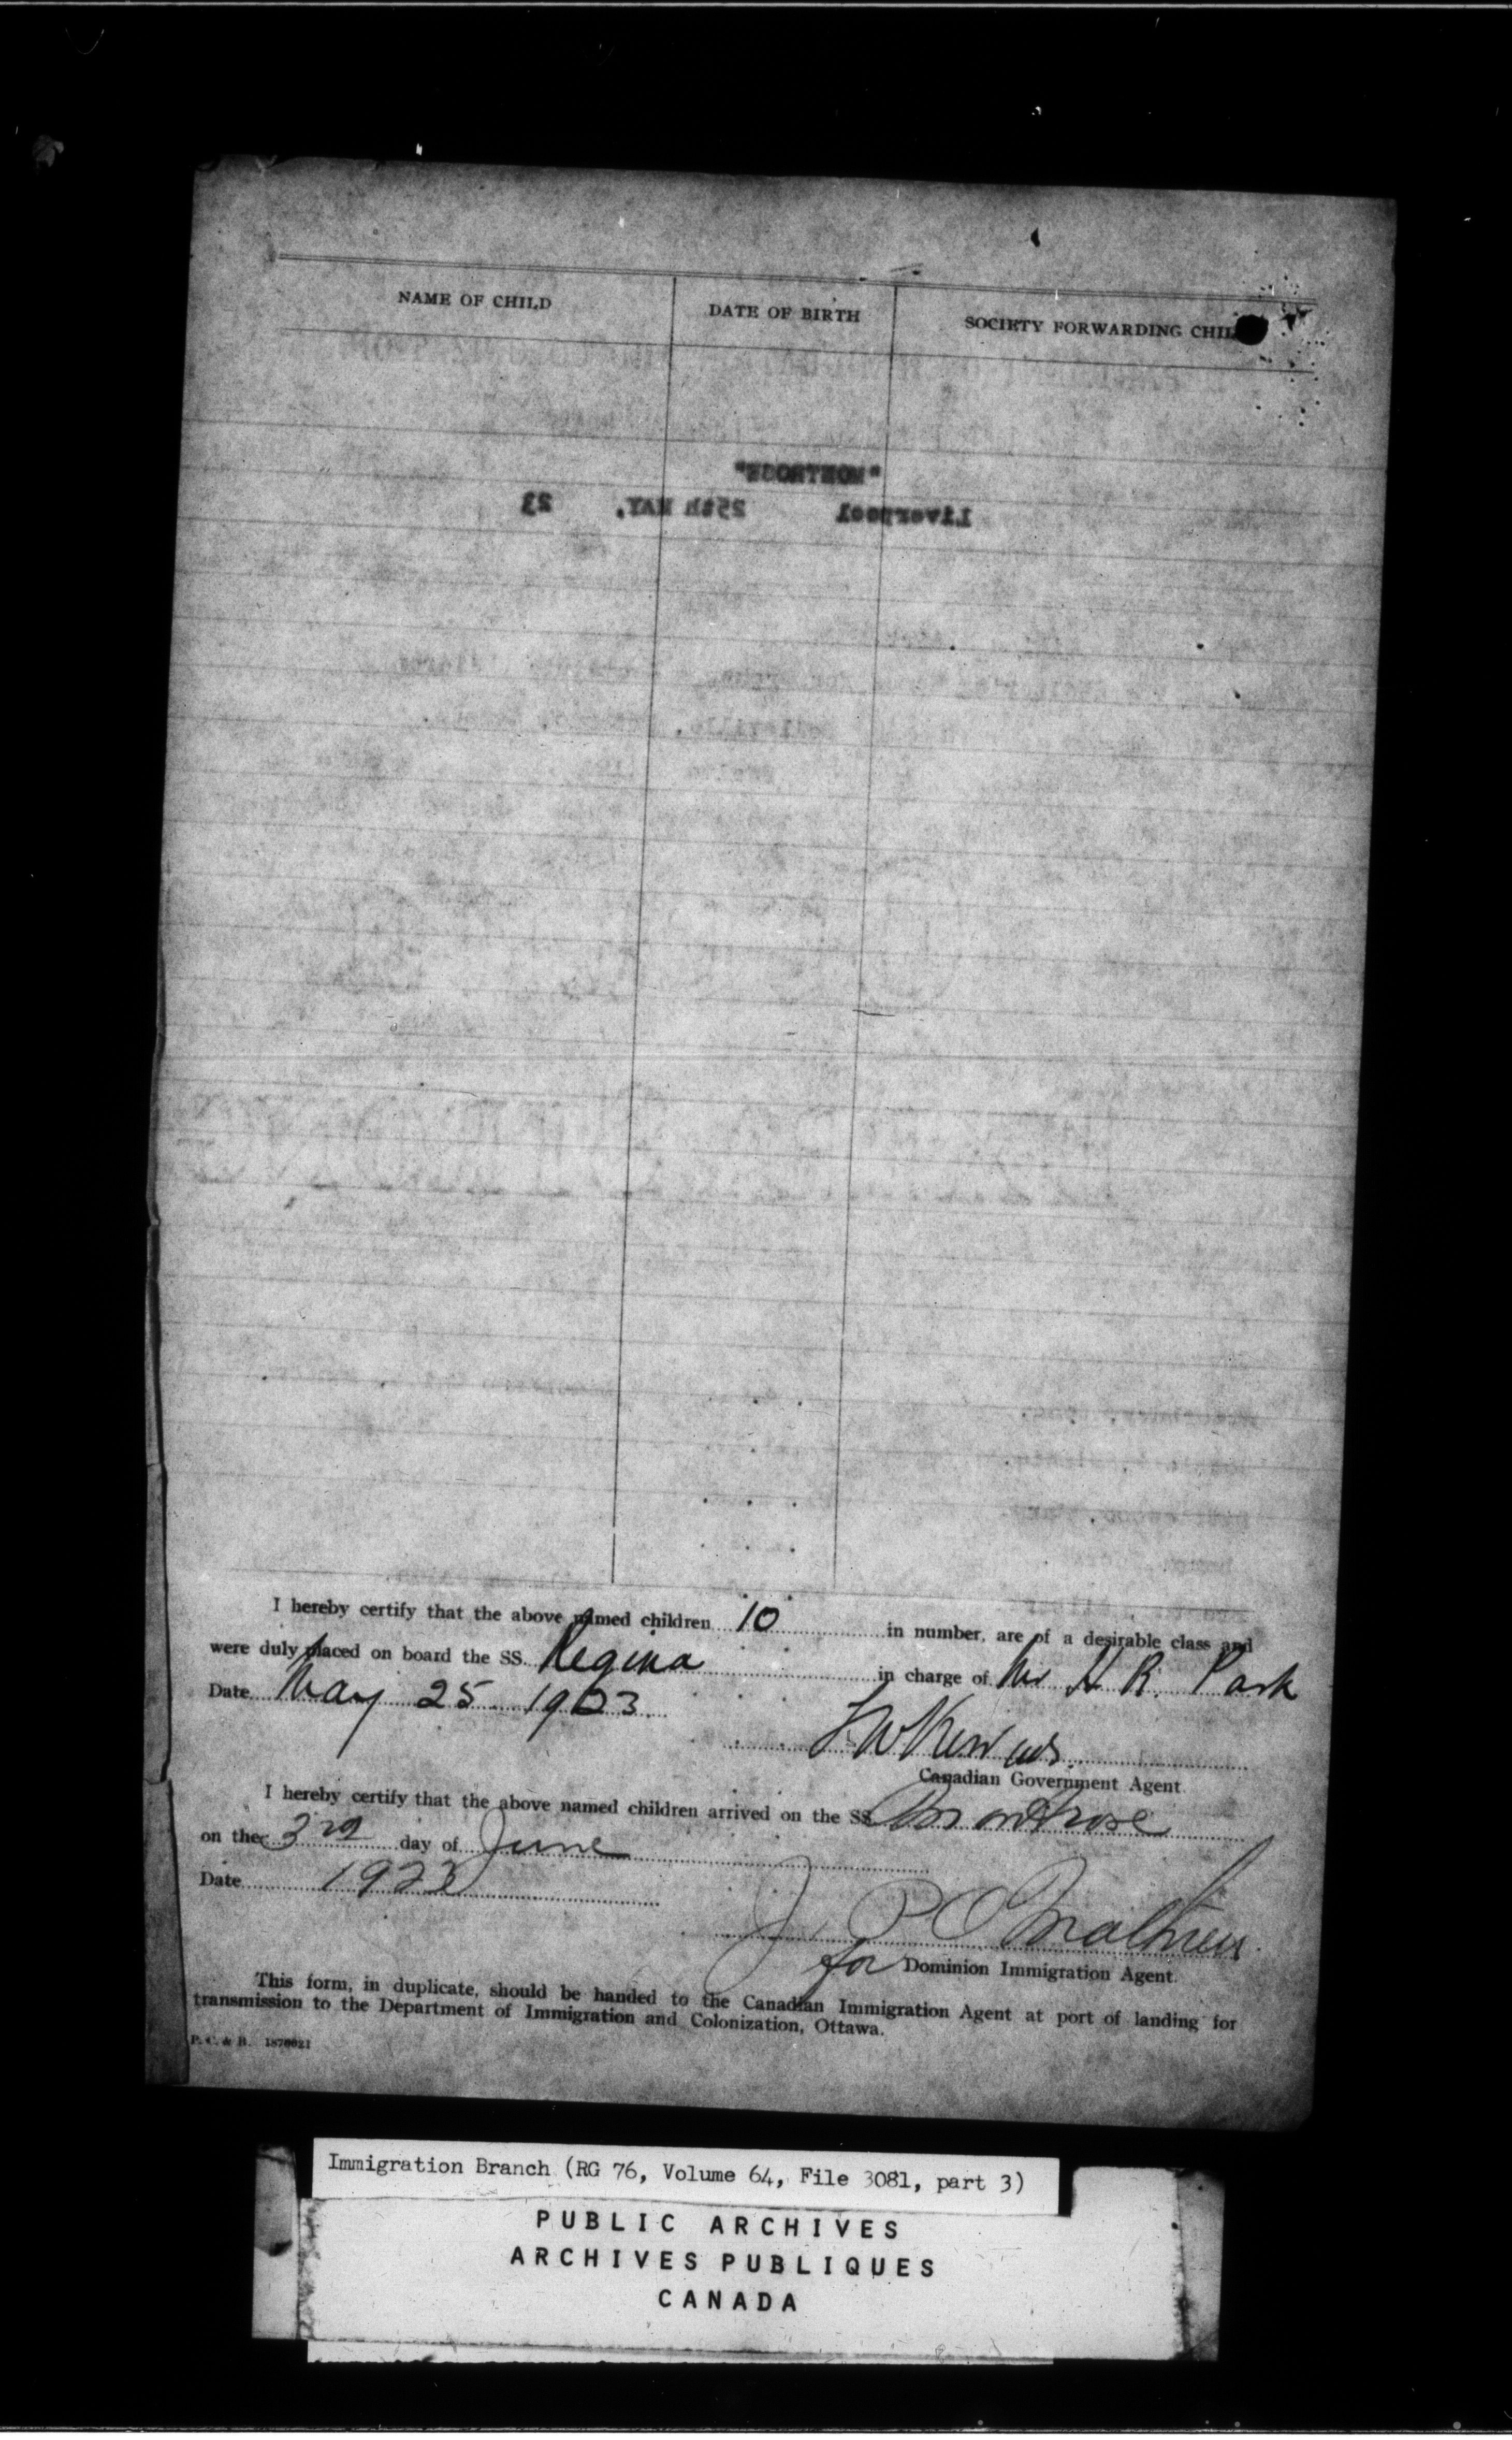 NAME OF CHILD DATE OF BIRTH SOCIETY FORWARDING CHIL
"MONTROSE"
Liverpool 25th MAY, 23
I hereby certify that the above named children 10 in number, are of a desirable class and
were duly placed on board the SS. Regina in charge of Mr H R. Park
Date May 25 1923
Canadian Government Agent.
I hereby certify that the above named children arrived on the SS Montrose
on the 3rd day of June
Date 1923
J. P. O
for Dominion Immigration Agent.
This form, in duplicate, should be handed to the Canadian Immigration Agent at port of landing for
transmission to the Department of Immigration and Colonization, Ottawa.
P. C. & B. 1870021
Immigration Branch (RG 76, Volume 64, File 3081, part 3)
PUBLIC ARCHIVES
ARCHIVES PUBLIQUES
CANADA